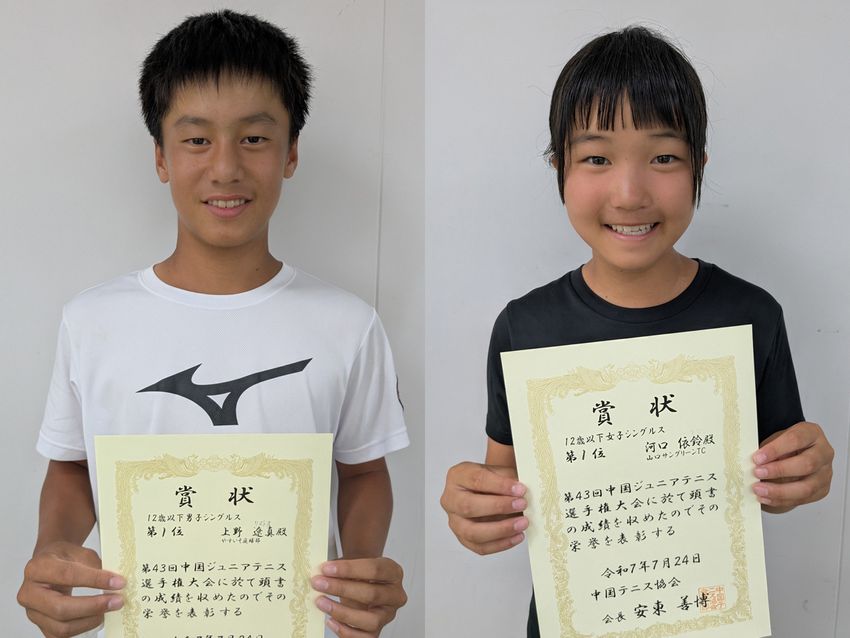 賞状
12歳以下男子シングルス
第1位 上野 遼真殿
やすいそ庭球部
第43回中国ジュニアテニス
選手権大会に於て頭書
の成績を収めたのでその
栄誉を表彰する
賞状
12歳以下女子シングルス
第1位 河口 依鈴殿
山口サングリーンTC
第43回中国ジュニアテニス
選手権大会に於て頭書
の成績を収めたのでその
栄誉を表彰する
令和7年7月24日
中国テニス協会
会長 安東 善博